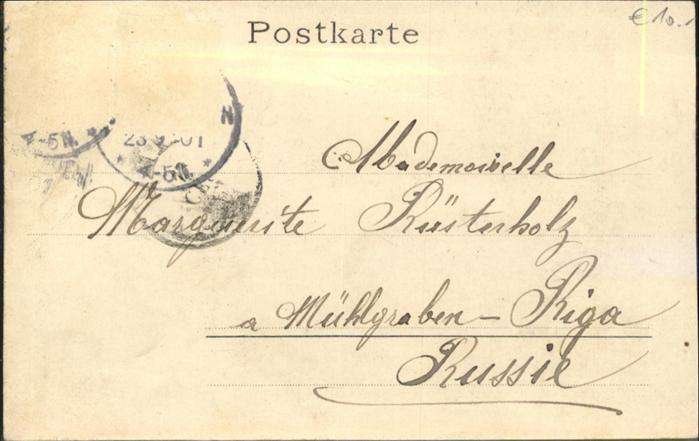 Postkarte
€ 10.-
N
4-5N. *
23 9 01
* 4-5N. *
Mademoiselle
Marguerite Rüsterholz
a Mühlgraben – Riga
Russie